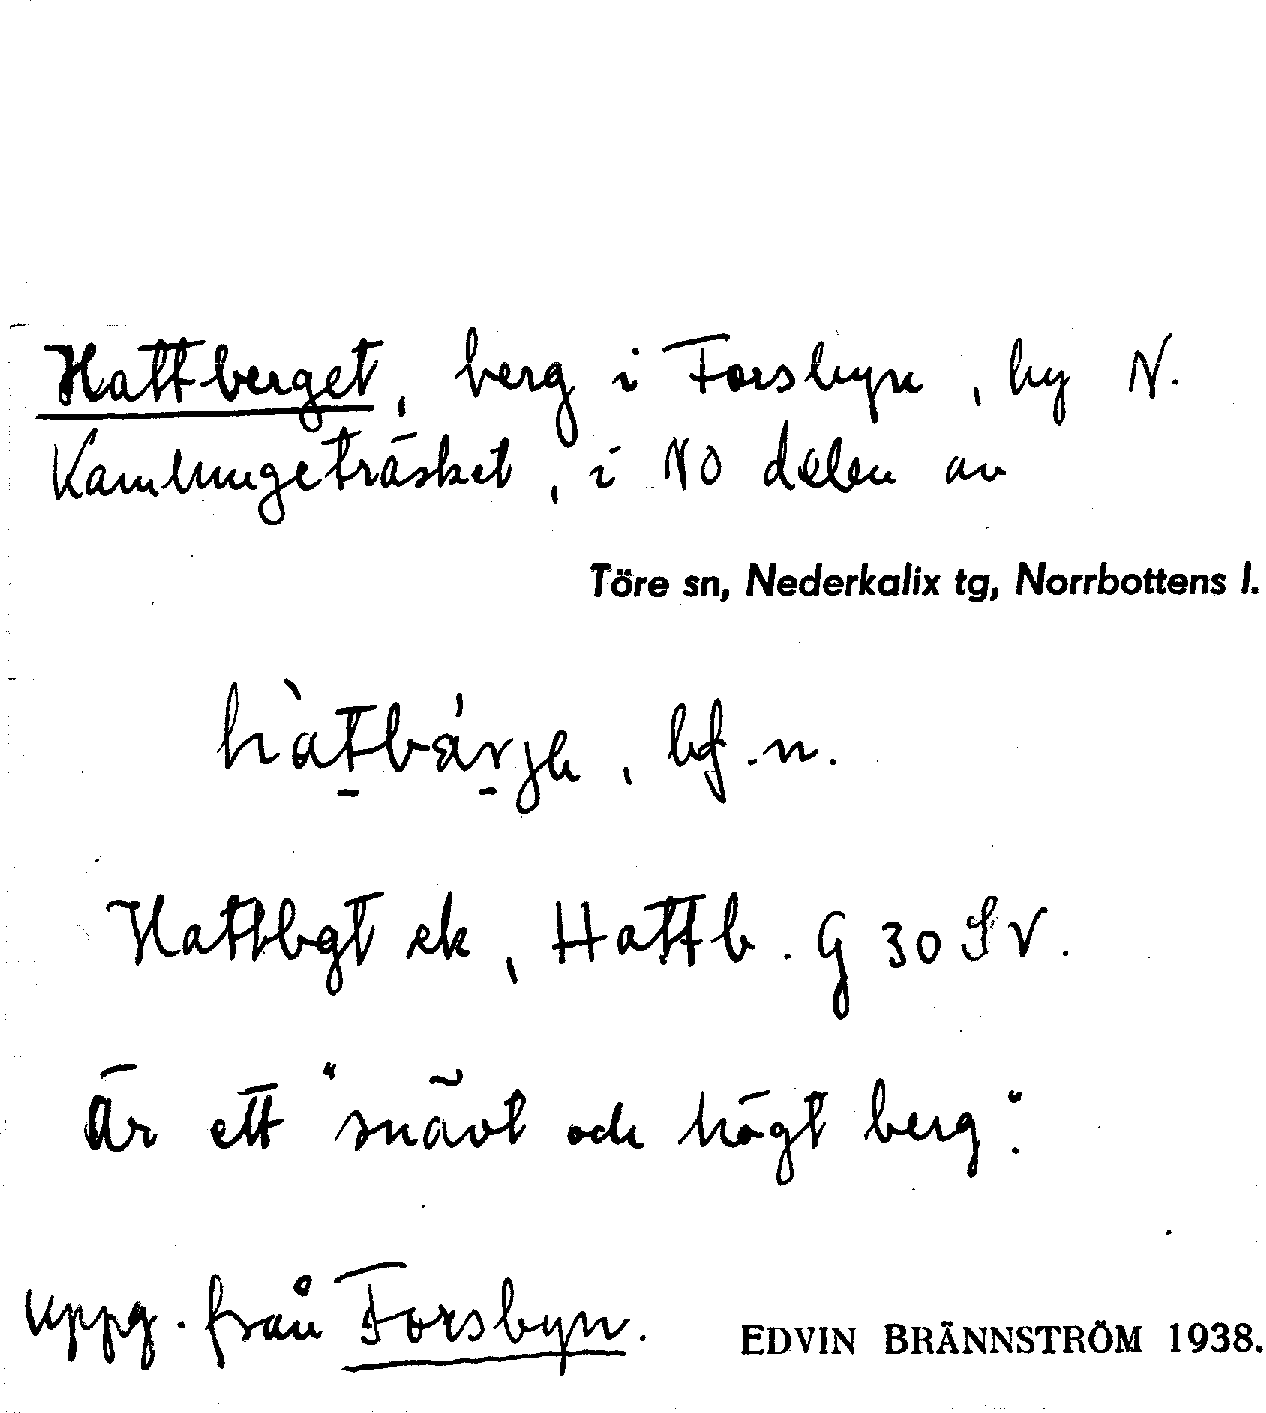 Hattberget, berg i Forsbyn, by N.
Kamlungeträsket, i NO delen av
Töre sn, Nederkalix tg, Norrbottens l.
hàtbárjə, bf. n.
Hattbgt ek, Hattb. G 30 SV.
Är ett "snävt och högt berg".
uppg. från Forsbyn.
EDVIN BRÄNNSTRÖM 1938.